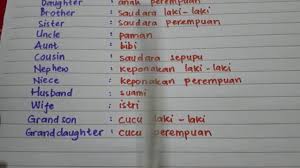 Daughter : anak perempuan
Brother : saudara laki-laki
Sister : saudara perempuan
Uncle : paman
Aunt : bibi
Cousin : saudara sepupu
Nephew : keponakan laki-laki
Niece : keponakan perempuan
Husband : suami
Wife : istri
Grandson : cucu laki-laki
Granddaughter : cucu perempuan